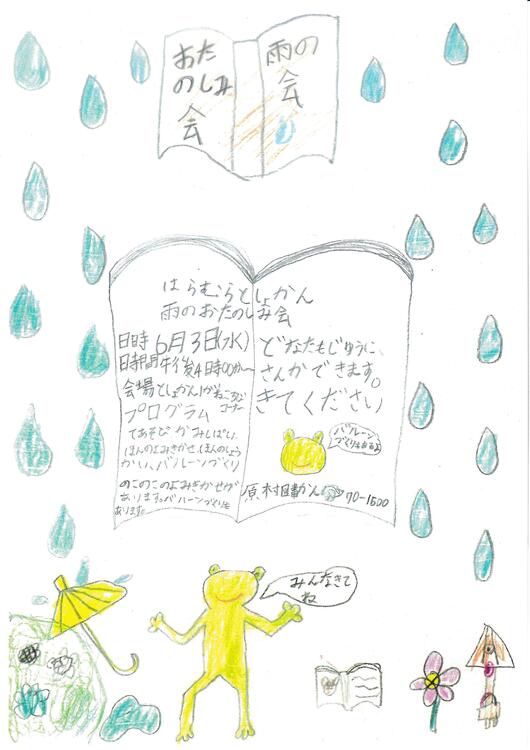 おた
のしみ
会
雨の
会
はらむらとしょかん
雨のおたのしみ会
日時 6月3日(水)
日時間午後4時00から
会場としょかん
コーナー
プログラム
てあそび かみしばい
ほんのよみきかせ、ほんのしょう
かい、バルーンづくり
のこのこのよみきかせが
あります。バルーンづくりも
あります。
どなたもじゆうに、
さんかできます。
きてください
バルーン
づくりもあるよ
原村図書かん 70-1500
みんなきて
ね